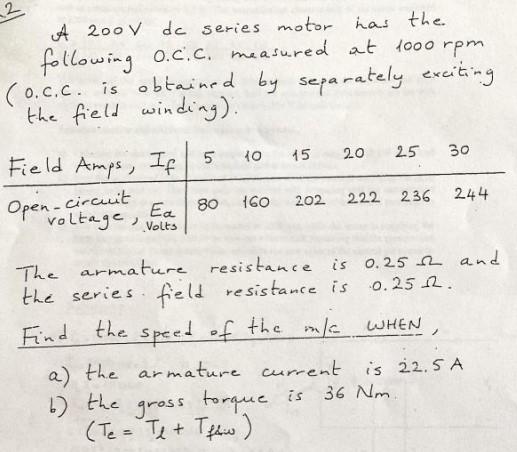 2
A 200V dc series motor has the
following O.C.C. measured at 1000 rpm
(O.C.C. is obtained by separately exciting
the field winding).
Field Amps, If 5 10 15 20 25 30
Open-circuit
voltage, Ea 80 160 202 222 236 244
Volts
The armature resistance is 0.25 Ω and
the series field resistance is 0.25 Ω.
Find the speed of the m/c WHEN,
a) the armature current is 22.5 A
b) the gross torque is 36 Nm.
(Te = Tl + Tf&w)